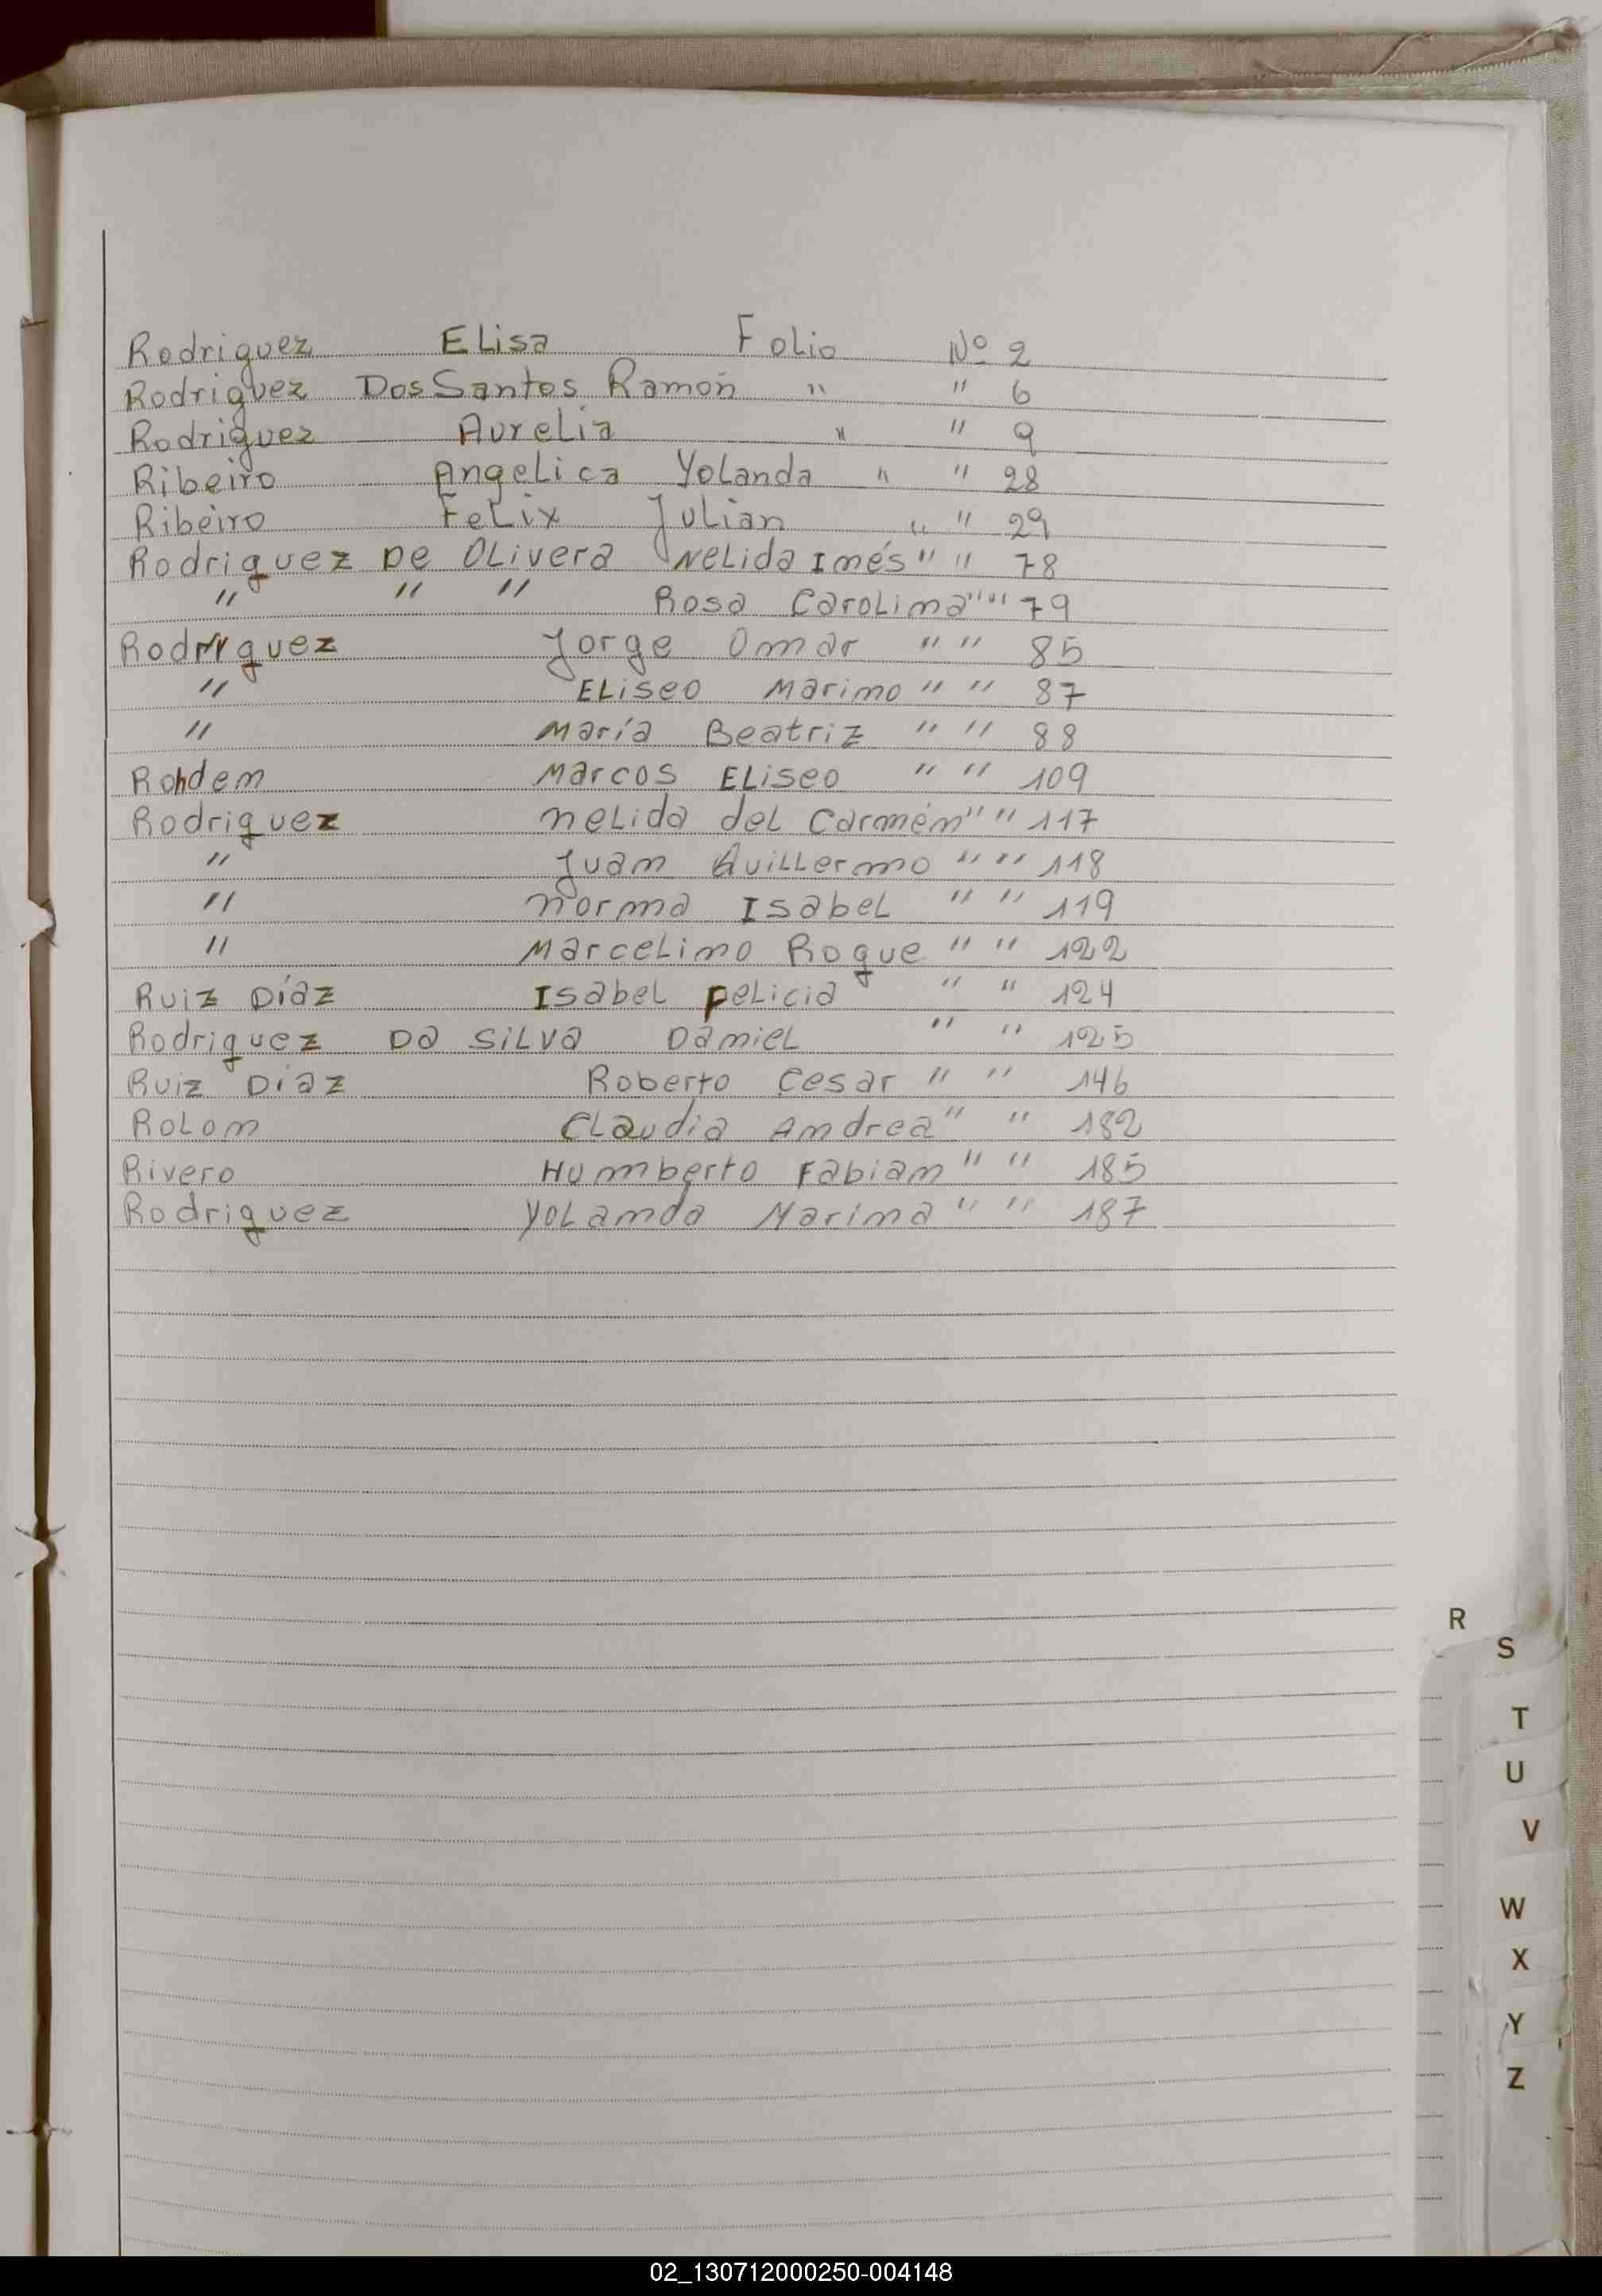 Rodriguez Elisa Folio Nº 2
Rodriguez Dos Santos Ramón " " 6
Rodriguez Aurelia " " 9
Ribeiro Angelica Yolanda " " 28
Ribeiro Felix Julian " " 29
Rodriguez De Olivera Nelida Imés " " 78
" " " Rosa Carolima " " 79
Rodriguez Jorge Omar " " 85
" Eliseo Marimo " " 87
" María Beatriz " " 88
Rohdem Marcos Eliseo " " 109
Rodriguez Nelida del Carmém " " 117
" Juam Guillermo " " 118
" Norma Isabel " " 119
" Marcelimo Roque " " 122
Ruiz Díaz Isabel Felicia " " 124
Rodriguez Da Silva Damiel " " 125
Ruiz Diaz Roberto Cesar " " 146
Rolom Claudia Amdrea " " 182
Rivero Humberto Fabiam " " 185
Rodriguez Yolamda Marima " " 187
R
S
T
U
V
W
X
Y
Z
02_130712000250-004148